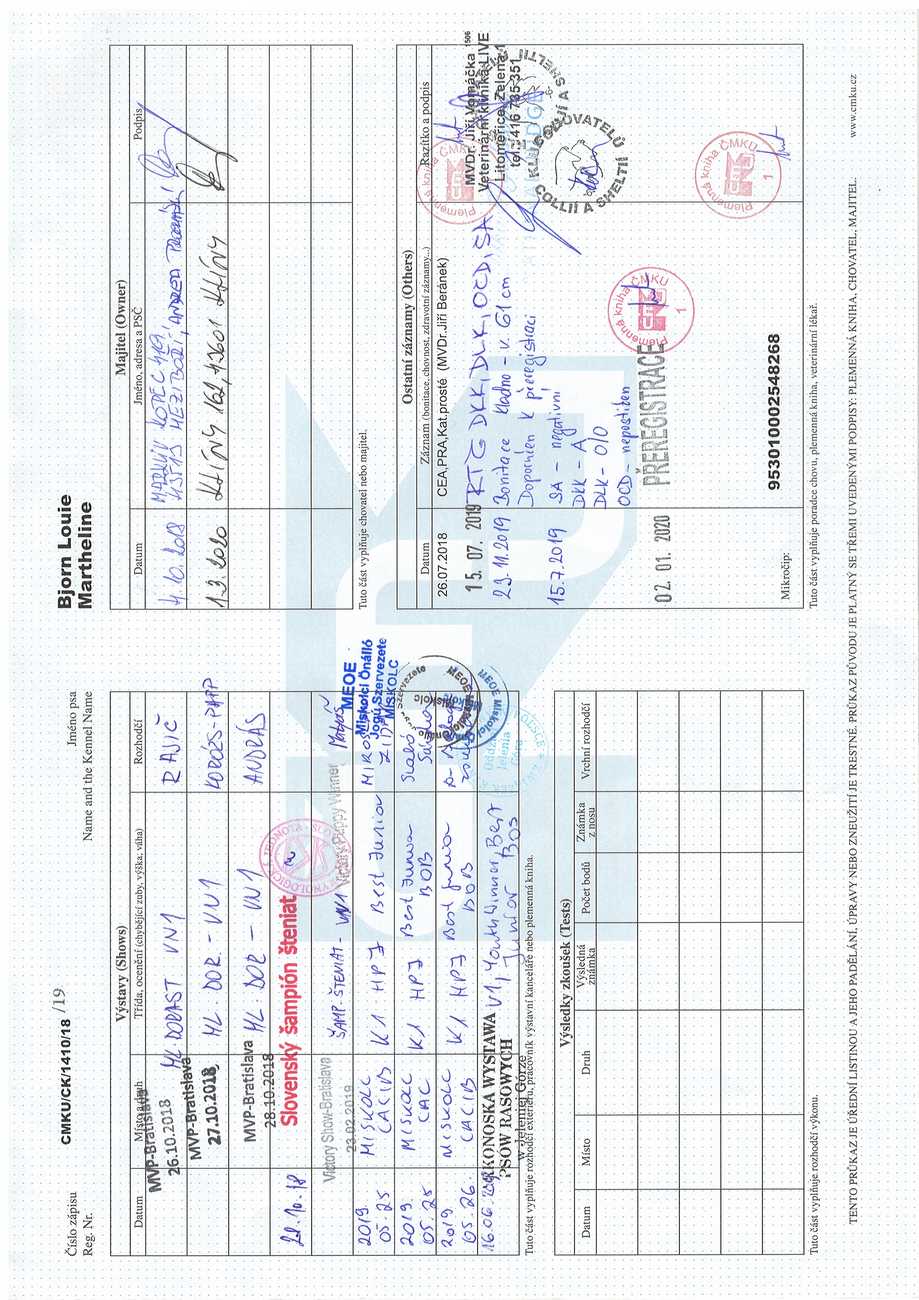 Číslo zápisu
Reg. Nr.
CMKU/CK/1410/18 /19
Jméno psa
Name and the Kennel Name
Bjorn Louie
Martheline
Výstavy (Shows)
Datum
Místo a druh
Třída, ocenění (chybějící zuby, výška; váha)
Rozhodčí
MVP-Bratislava
26.10.2018
VN1
RAJIČ
MVP-Bratislava
27.10.2018
ML. DOR. - VN1
MVP-Bratislava
28.10.2018
ML. DOR - VN1
ANDRÁS
Slovenský šampión šteniat
Victory Show-Bratislava
23.02.2019
ŠAMP. ŠTENIAT - VN1
Victory Puppy Winner
2019.
05.25
MISKOLC
CACIB
K1 HPJ Best Junior
2019
05.25
MISKOLC
CAC
K1 HPJ Best Junior
BOB
2019
05.26
MISKOLC
CACIB
K1 HPJ Best Junior
BOB
MEOE
Miskolci Önálló
Jogú Szervezete
MISKOLC
16.06.
KARKONOSKA WYSTAWA
PSÓW RASOWYCH
w Jeleniej Górze
V1, Youth Winner, Best
Junior BOS
Tuto část vyplňuje rozhodčí exteriéru, pracovník výstavní kanceláře nebo plemenná kniha.
Výsledky zkoušek (Tests)
Datum
Místo
Druh
Výsledná
známka
Počet bodů
Známka
z nosu
Vrchní rozhodčí
Tuto část vyplňuje rozhodčí výkonu.
Majitel (Owner)
Datum
Jméno, adresa a PSČ
Podpis
4.10.2018
1.3.2020
Tuto část vyplňuje chovatel nebo majitel.
Ostatní záznamy (Others)
Datum
Záznam (bonitace, chovnost, zdravotní záznamy...)
Razítko a podpis
26.07.2018
CEA,PRA,Kat.prosté (MVDr.Jiří Beránek)
Plemenná kniha ČMKU
15. 07. 2019
RTG DKK, DLK, OCD, SA
MVDr. Jiří Vomáčka 1506
Veterinární klinika LIVE
Litoměřice, Zelená 1
tel.: 416 735 351
23.11.2019
Bonitace Kladno - v. 61 cm
Doporučen k přeregistraci
KLUB CHOVATELŮ
COLLIÍ A SHELTIÍ
15.7.2019
SA - negativní
DKK - A
DLK - 0/0
OCD - nepostižen
02. 01. 2020
PŘEREGISTRACE
Plemenná kniha ČMKU
1
Plemenná kniha ČMKU
1
Mikročip:
953010002548268
Tuto část vyplňuje poradce chovu, plemenná kniha, veterinární lékař.
TENTO PRŮKAZ JE ÚŘEDNÍ LISTINOU A JEHO PADĚLÁNÍ, ÚPRAVY NEBO ZNEUŽITÍ JE TRESTNÉ. PRŮKAZ PŮVODU JE PLATNÝ SE TŘEMI UVEDENÝMI PODPISY: PLEMENNÁ KNIHA, CHOVATEL, MAJITEL.
www.cmku.cz